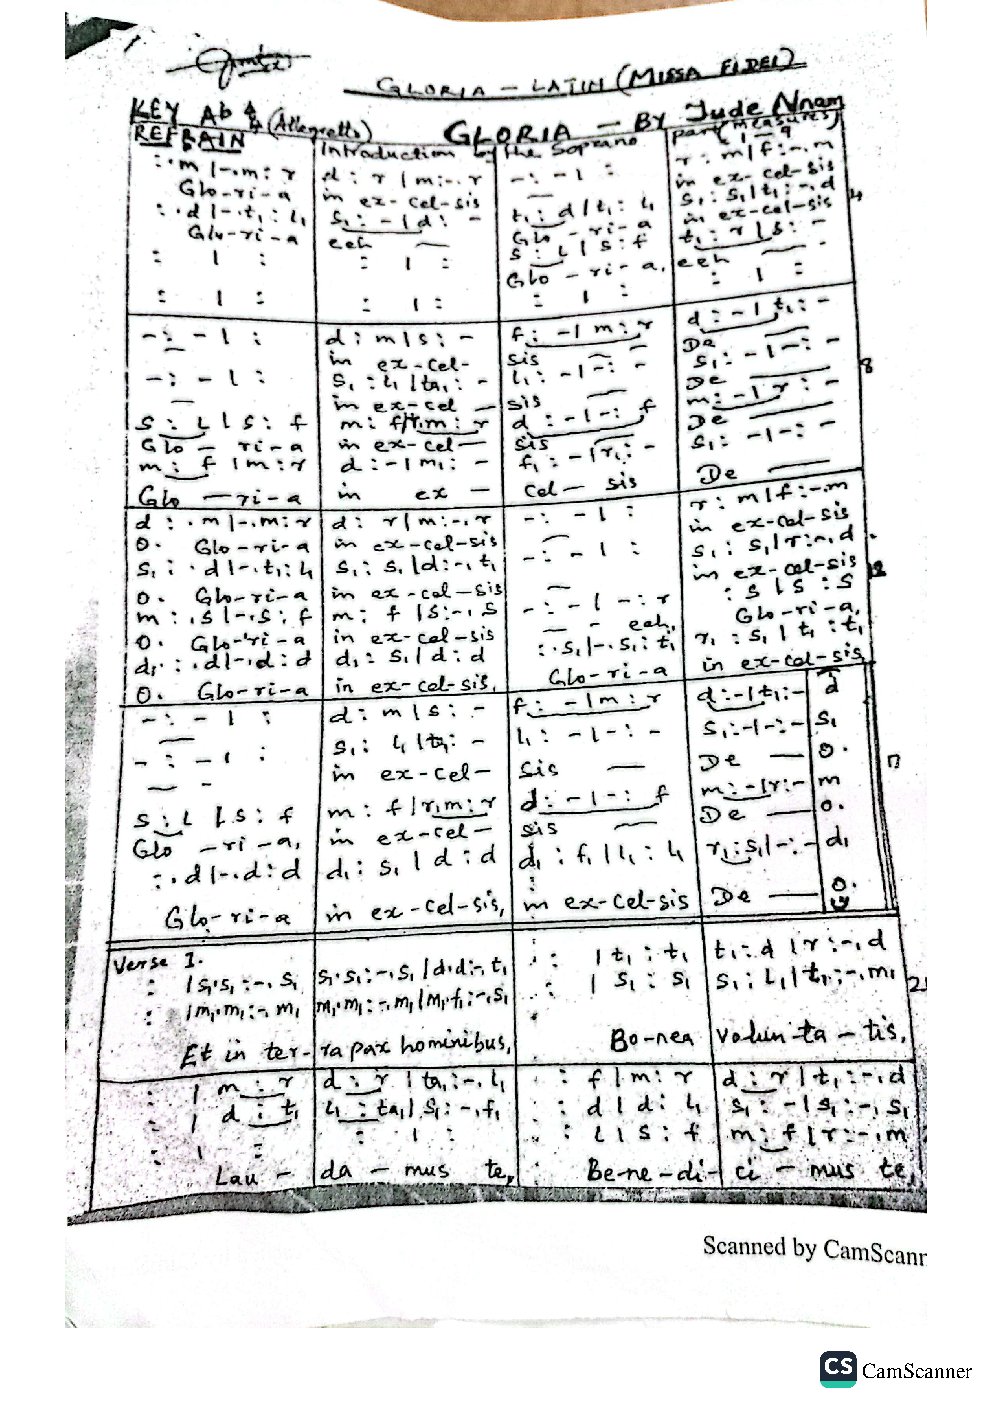 GLORIA – LATIN (MISSA FIDEI)
KEY Ab 4/4 (Allegretto) GLORIA – BY Jude Nnam
REFRAIN Introduction by the Soprano part (measures 1 – 9
: .m |-.m : r d : r | m:-. r - : - | : r : m | f :-. m
Glo-ri-a in ex-cel-sis in ex-cel-sis
: .d |-. t₁ : l₁ s₁ : - | d : - t₁ : d | t₁ : l₁ s₁ : s₁ | t₁ :-. d 4
Glo-ri-a eeh Glo-ri-a in ex-cel-sis
: | : : | : s : L | s : f t₁ : r | s : -
Glo-ri-a, eeh
: | : : | : : | : : | :
- : - | : d : m | s : - f : - | m : r d : - | t₁ : -
in ex-cel- sis De
- : - | : s₁ : l₁ | ta₁ : - l₁ : - | - : - s₁ : - | - : - 8
in ex-cel — sis De
s : L | s : f m : f | r.m : r d : - | - : f m : - | r : -
Glo — ri-a in ex-cel — sis De
m : f | m : r d : - | m₁ : - f₁ : - | r₁ : - s₁ : - | - : -
Glo — ri-a in ex — cel — sis De
d : .m |-. m : r d : r | m :-. r - : - | : r : m | f :-. m
O. Glo-ri-a in ex-cel-sis in ex-cel-sis
s₁ : .d |-. t₁ : l₁ s₁ : s₁ | d :-. t₁ - : - | : s₁ : s₁ | r :-. d
O. Glo-ri-a in ex-cel-sis in ex-cel-sis 12
m : .s |-. s : f m : f | s :-. s - : - | - : r : s | s : s
O. Glo-ri-a in ex-cel-sis — eeh, Glo-ri-a,
d₁ : .d |-. d : d d₁ : s₁ | d : d : .s₁ |-. s₁ : t₁ r₁ : s₁ | t₁ : t₁
O. Glo-ri-a in ex-cel-sis, Glo-ri-a in ex-cel-sis
- : - | : d : m | s : - f : - | m : r d : - | t₁ : - d
- : - | : s₁ : l₁ | ta₁ : - l₁ : - | - : - s₁ : - | - : - s₁
in ex-cel- sis De — O.
s : L | s : f m : f | r.m : r d : - | - : f m : - | r : - m
Glo-ri-a, in ex-cel- sis De — O.
: .d |-. d : d d₁ : s₁ | d : d d₁ : f₁ | l₁ : l₁ r₁ : s₁ | - : - d₁
Glo-ri-a in ex-cel-sis, in ex-cel-sis De — O.
Verse 1.
: | s₁.s₁ :-. s₁ s₁.s₁ :-. s₁ | d.d :-. t₁ : | t₁ : t₁ t₁ : d | r :-. d
: | m₁.m₁ :-. m₁ m₁.m₁ :-. m₁ | m₁.f₁ :-. s₁ : | s₁ : s₁ s₁ : L₁ | t₁ :-. m₁
Et in ter-ra pax hominibus, Bo-nea volun-ta-tis,
: | m : r d : r | ta₁ :-. l₁ : f | m : r d : r | t₁ :-. d
: | d : t₁ l₁ : ta₁ | s₁ :-. f₁ : d | d : l₁ s₁ : - | s₁ :-. s₁
: | : : | : : L | s : f m : f | r :-. m
Lau — da — mus te, Be-ne-di-ci — mus te,
Scanned by CamScann
CS CamScanner